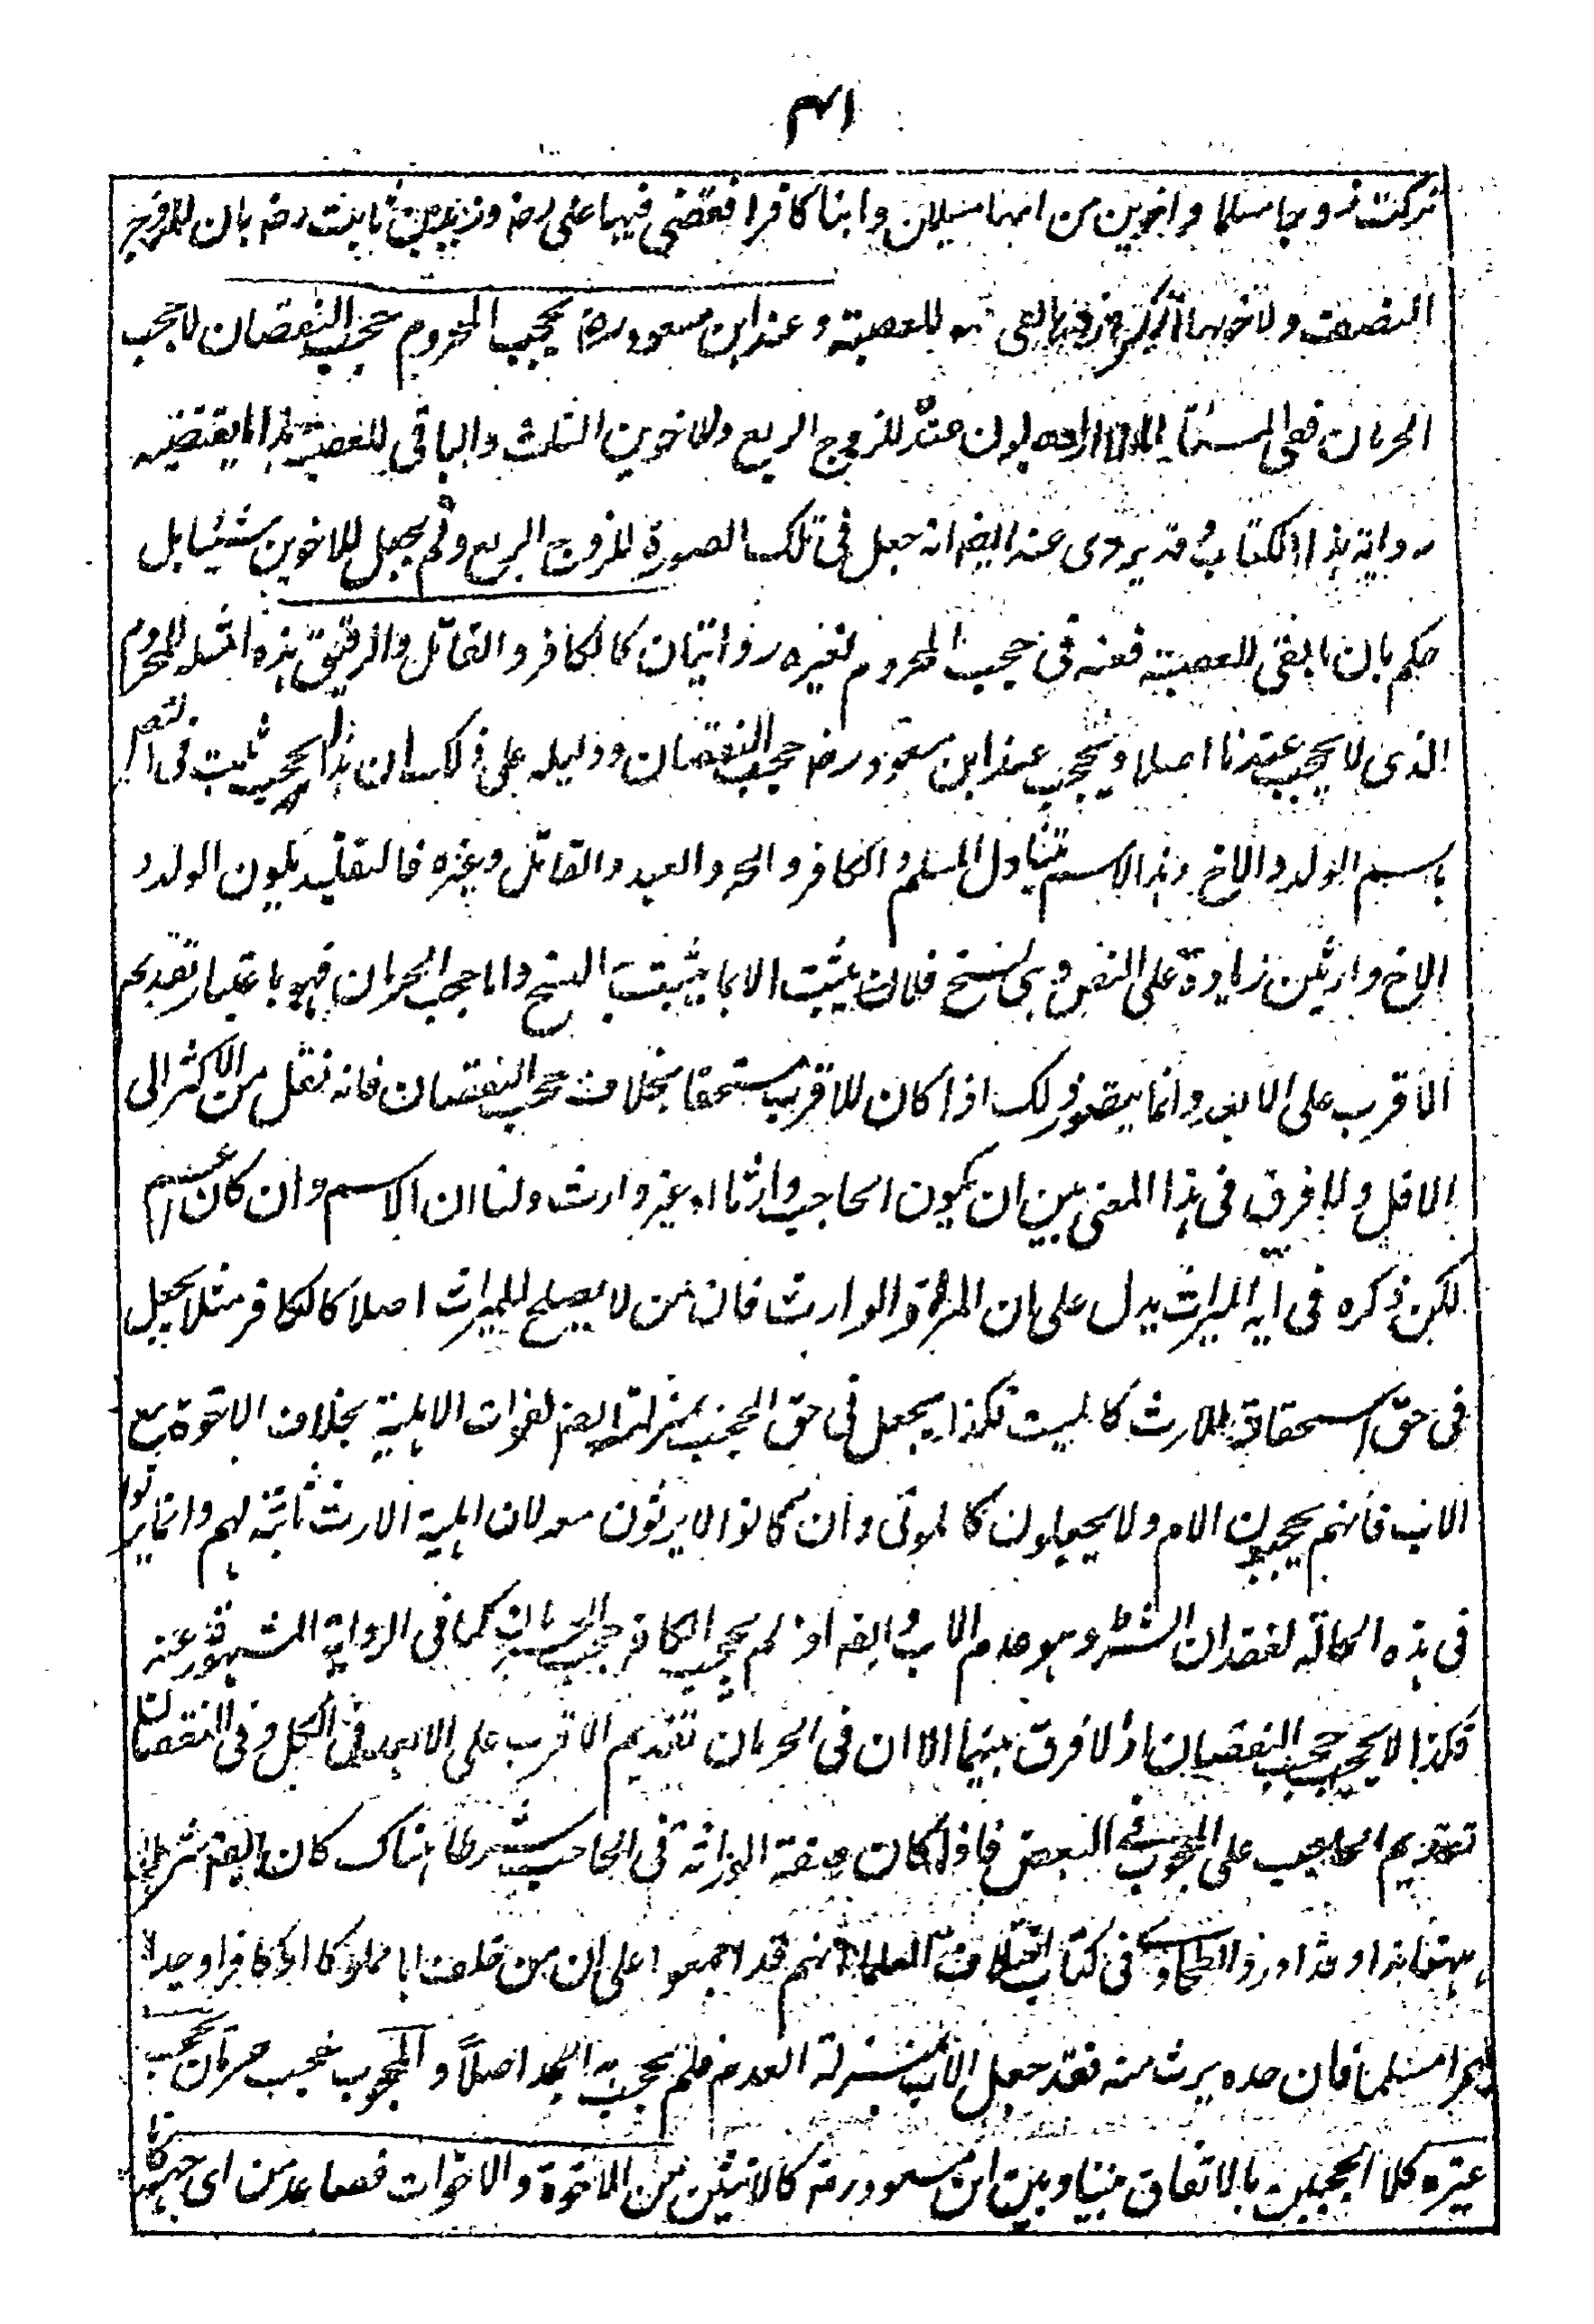 ۴۱
تركت زوجا مسلما واخوين من امها مسلمين وابنا كافرا فقضى فيها على رضه وزيد بن ثابت رضه بان للزوج
النصف ولاخويها الثلث وما بقى فهو للعصبة وعند ابن مسعود رضه يحجب المحروم حجب النقصان لا حجب
الحرمان ففى المسئلة يكون عنده للزوج الربع وللاخوين الثلث والباقى للعصبة هذا ما يقتضيه
رواية هذا الكتاب وقد يروى عنه ايضا انه جعل فى تلك الصورة للزوج الربع ولم يجعل للاخوين شيئا بل
حكم بان ما بقى للعصبة فعنه فى حجب المحروم لغيره روايتان كالكافر والقاتل والرقيق هذه امثلة للمحروم
الذى لا يحجب عندنا اصلا ويحجب عند ابن مسعود رضه حجب النقصان ودليله على ذلك ان هذا الحجب ثبت فى النص
باسم الولد والاخ وهذا الاسم يتناول المسلم والكافر والحر والعبد والقاتل وغيره فالتقييد بكون الولد و
الاخ وارثين زيادة على النص وهى نسخ فلا يثبت الا بما يثبت به النسخ واما حجب الحرمان فهو باعتبار تقديم
الاقرب على الابعد وانما يتصور ذلك اذا كان للاقرب مستحقا بخلاف حجب النقصان فانه نقل من الاكثر الى
الاقل ولا فرق فى هذا المعنى بين ان يكون الحاجب وارثا او غير وارث ولنا ان الاسم وان كان اعم
لكن ذكره فى اية الميراث يدل على ان المراد الوارث فان من لا يصلح للميراث اصلا كالكافر مثلا يجعل
فى حق استحقاق الارث كالميت فكذا يجعل فى حق الحجب بمنزلته ايضا لفوات الاهلية بخلاف الاخوة مع
الاب فانهم يحجبون الام ولا يجعلون كالموتى وان كانوا لا يرثون معه لان اهلية الارث ثابتة لهم وانما لم يرثوا
فى هذه الحالة لفقدان الشرط وهو عدم الاب وايضا اذا لم يحجب الكافر حجب الحرمان كما فى الرواية المشهورة عنه
فكذا لا يحجب حجب النقصان اذ لا فرق بينهما الا ان فى الحرمان تقديم الاقرب على الابعد فى الكل وفى النقصان
تقديم الحاجب على المحجوب فى البعض فاذا كان صفة الوراثة فى الحاجب شرطا هناك كان ايضا شرطا
ههنا هذا وقد اورد الطحاوى فى كتاب اختلاف العلماء انهم قد اجمعوا على ان من خلف ابا مملوكا او كافرا وجدا
حرا مسلما فان جده يرث منه فقد جعل الاب بمنزلة العدم فلم يحجب به الجد اصلا والمحجوب بحجب حرمان يحجب
غيره كلا الحجبين بالاتفاق بيننا وبين ابن مسعود رضه كالاثنين من الاخوة والاخوات فصاعدا من اى جهة كانا